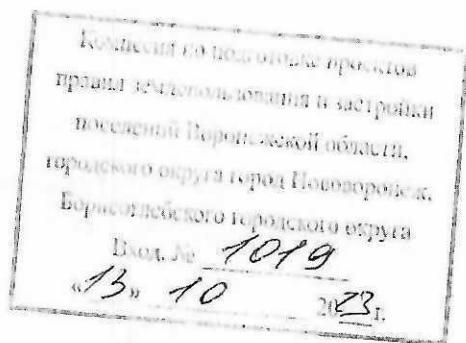 Комиссия по подготовке проектов
правил землепользования и застройки
поселений Воронежской области,
городского округа город Нововоронеж,
Борисоглебского городского округа
Вход. № 1019
«13» 10 2023 г.